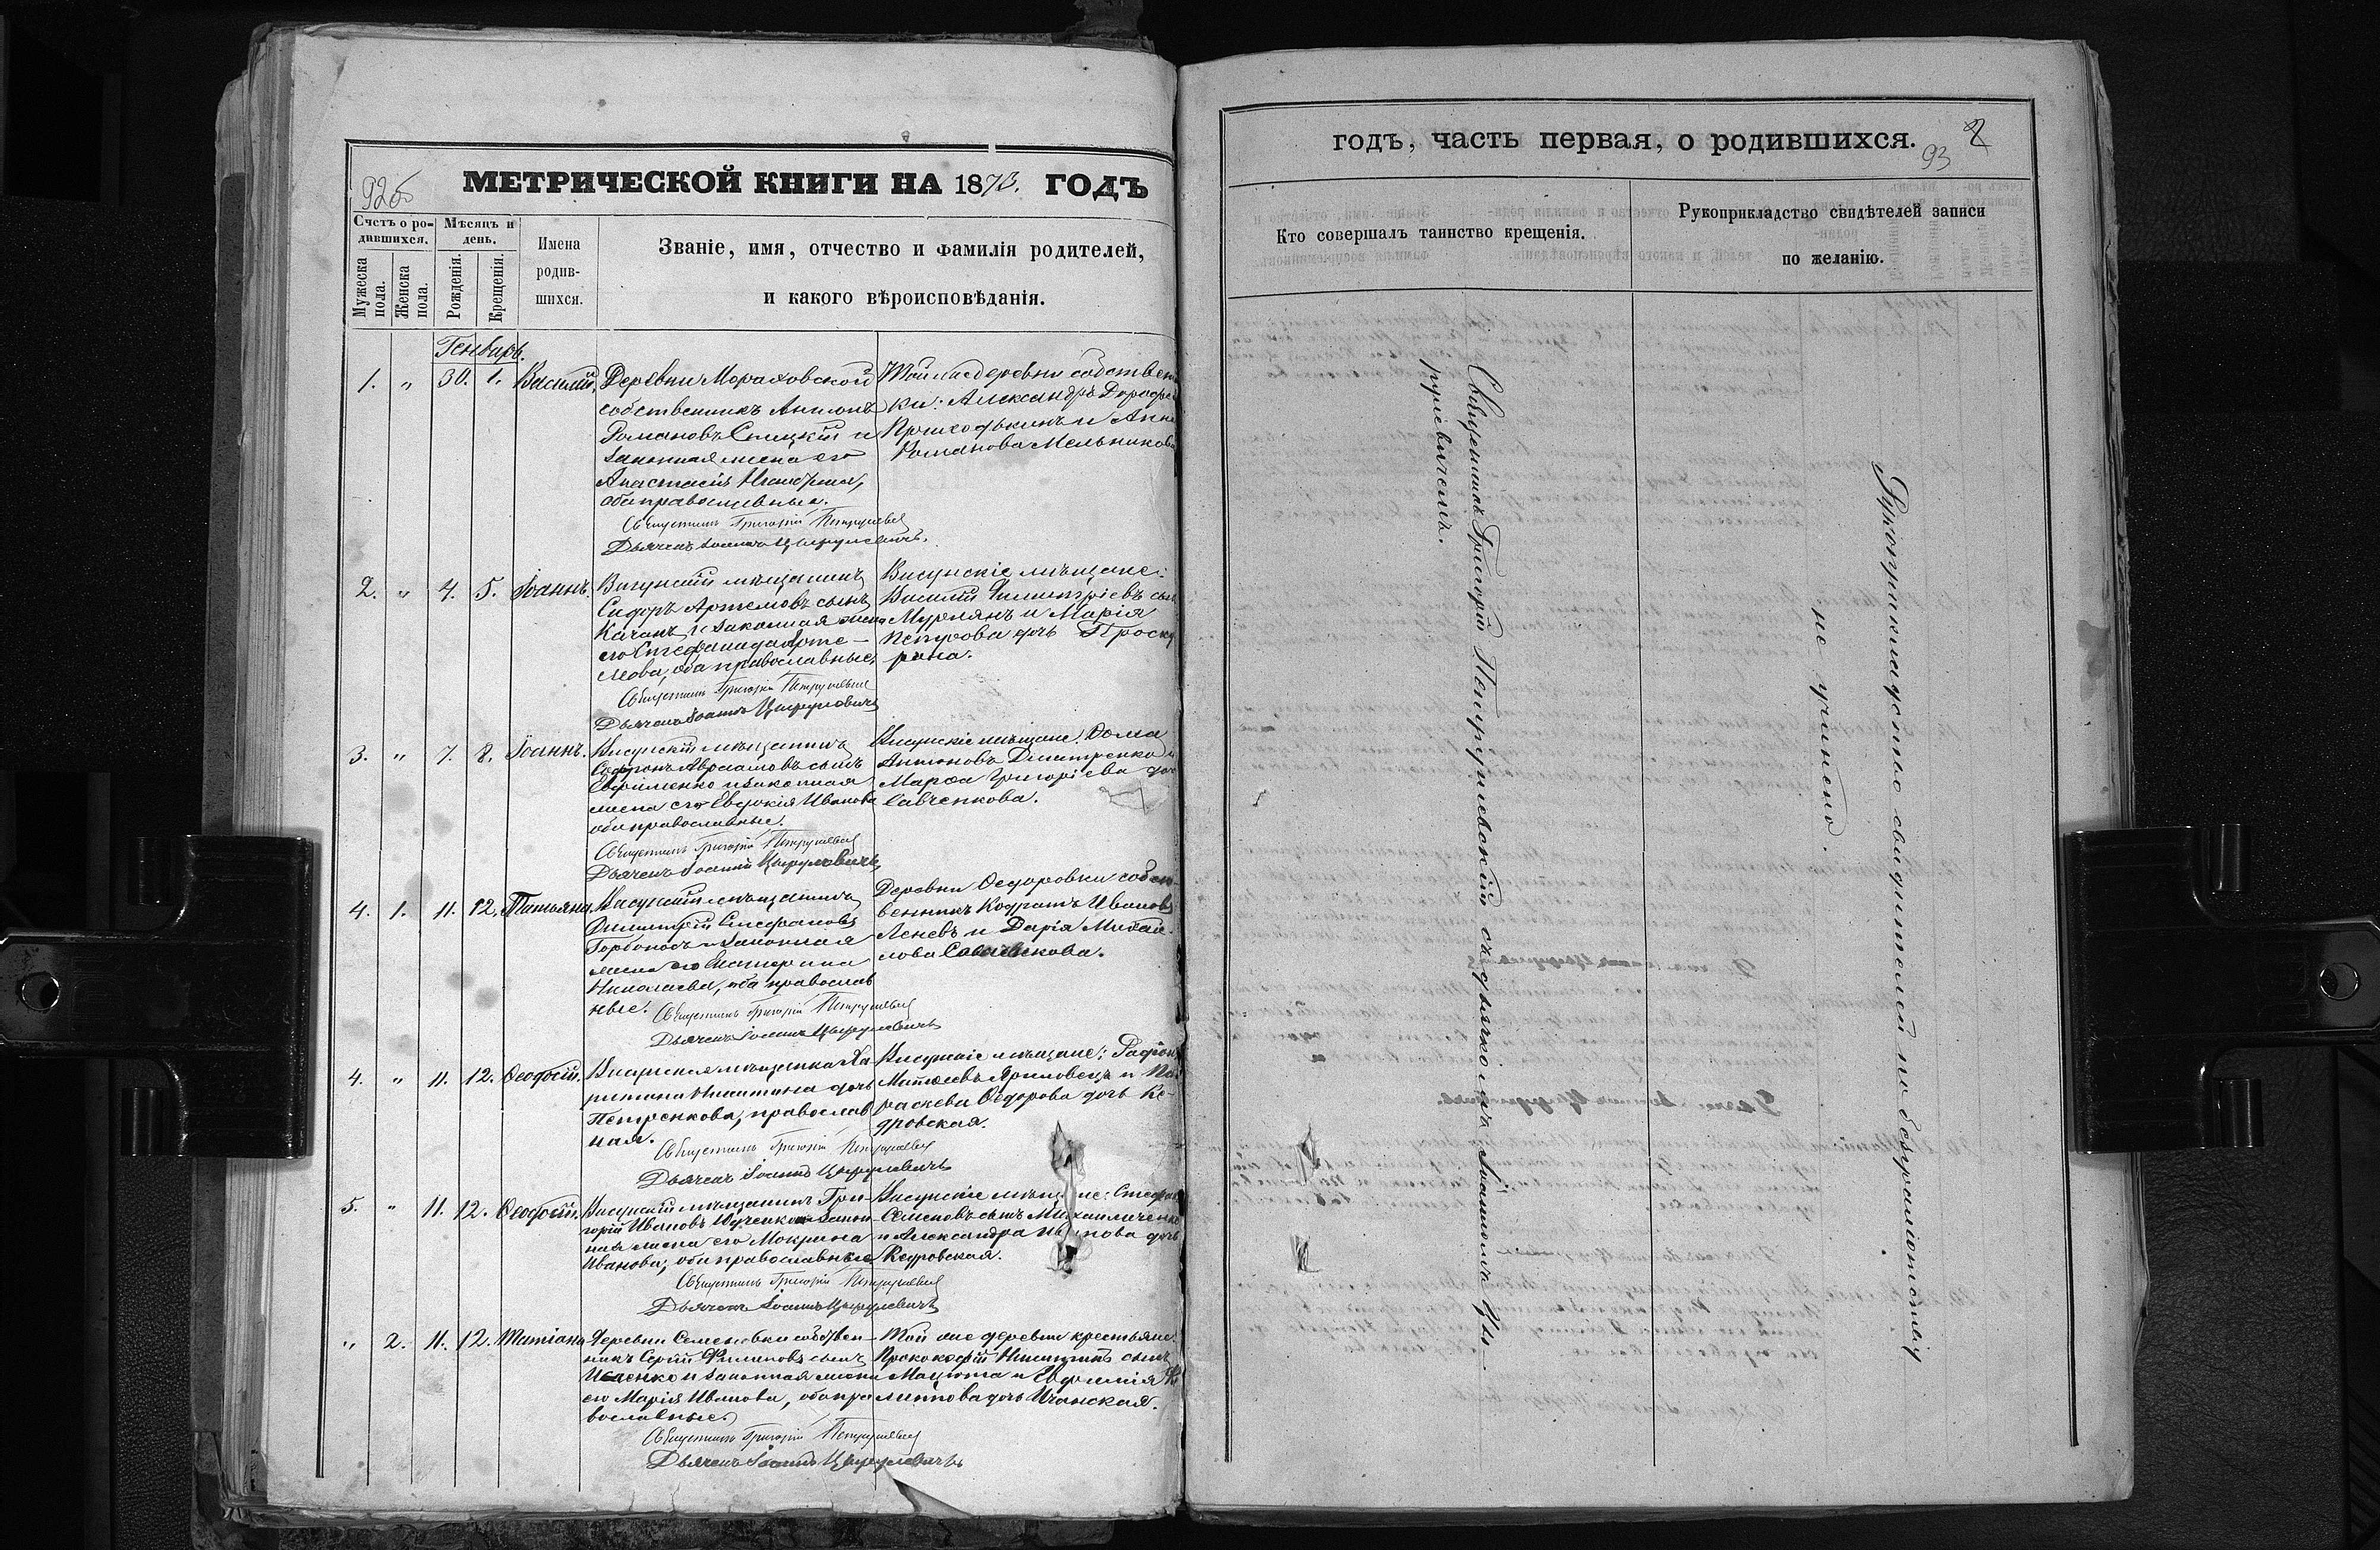 92об
МЕТРИЧЕСКОЙ КНИГИ НА 1873. ГОДЪ
Счетъ о ро-
дившихся.
Мѣсяцъ и
день.
Мужеска
пола.
Женска
пола.
Рожденія.
Крещенія.
Имена
родив-
шихся.
Званіе, имя, отчество и фамилія родителей,
и какого вѣроисповѣданія.
Генварь.
1. " 30. 1. Василій,
Деревни Мораховской
собственникъ Антонъ
Романовъ и
законная жена его
Анастасія
оба православные.
Священникъ Григорій Петрушевскій
Дьячекъ Іоаннъ Цыруліевичъ.
Той же деревни собствен
ки: Александръ Дорофе
и Анна
Романова Мельникова
2. " 4. 5. Іоаннъ.
Висунскій мѣщанинъ
Сидоръ Артемовъ сынъ
Качанъ и законная жена
его Стефанида Арте-
мова, оба православные,
Священникъ Григорій Петрушевскій
Дьячекъ Іоаннъ Цыруліевичъ
Висунскіе мѣщане:
Василій Димитріевъ сынъ
и Марія
Петрова дочь Проску
рина.
3. " 7. 8. Іоаннъ.
Висунскій мѣщанинъ
Софронъ Авраамовъ сынъ
Ефименко и законная
жена его Евдокія Иванова
оба православные.
Священникъ Григорій Петрушевскій
Дьячекъ Іоаннъ Цыруліевичъ,
Висунскіе мѣщане: Ѳома
Антоновъ Димитренко и
Марѳа Григоріева доч
Савченкова.
4. 1. 11. 12. Татьяна.
Висунскій мѣщанинъ
Димитрій Стефановъ
Горбоносъ и законная
жена его Екатерина
Николаева, оба православ
ные.
Священникъ Григорій Петрушевскій
Дьячекъ Іоаннъ Цыруліевичъ
Деревни Ѳедоровки собст-
венникъ Кодратъ Ивановъ
и Дарія Михай-
лова
4. " 11. 12. Ѳеодосій.
Висунская мѣщанка Ха-
ритина Никитина дочь
Петренкова, православ
ная.
Священникъ Григорій Петрушевскій
Дьячекъ Іоаннъ Цыруліевичъ
Висунскіе мѣщане:
и Па
раскева Ѳедорова дочь Ке-
дровская.
5. " 11. 12. Ѳеодосій.
Висунскій мѣщанинъ Гри-
горій Ивановъ и закон-
ная жена его Мокрина
Иванова, оба православные
Священникъ Григорій Петрушевскій
Дьячекъ Іоаннъ Цыруліевичъ
Висунскіе мѣщане: Стефанъ
Семеновъ сынъ Михайличенко
и Александра дочь
Кедровская.
" 2. 11. 12. Татіана
Деревни Семеновки собствен-
никъ Сергій Филиповъ сынъ
Исаенко и законная жена
его Марія Иванова, оба пра
вославные.
Священникъ Григорій Петрушевскій
Дьячекъ Іоаннъ Цыруліевичъ
Той же деревни крестьяне:
Прокофій Никитинъ сынъ
Мацюта и Евфимія Фи
липпова дочь
годъ, часть первая, о родившихся.
93
2
Кто совершалъ таинство крещенія.
Рукоприкладство свидѣтелей записи
по желанію.
Священникъ Григорій Петрушевскій съ дьячкомъ Іоанномъ Цы-
руліевичемъ.
Рукоприкладство свидѣтелей по безграмотству
не учинено.